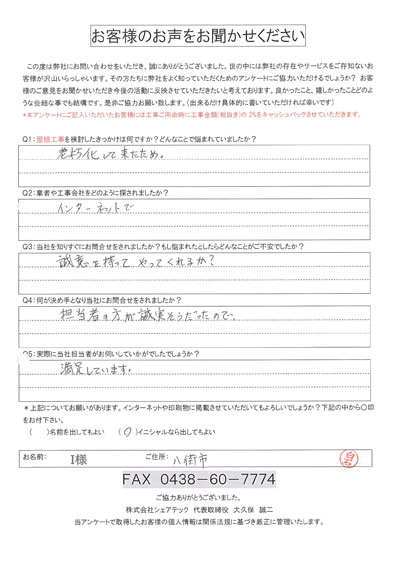 お客様のお声をお聞かせください
この度は弊社にお問い合わせをいただき、誠にありがとうございました。世の中には弊社の存在やサービスをご存知ないお
客様が沢山いらっしゃいます。その方たちに弊社をよく知っていただくためのアンケートにご協力いただけるでしょうか? お客
様のご意見をお聞かせいただき今後の活動に反映させていただきたいと考えております。良かったこと、嬉しかったことどのよ
うな些細な事でも結構です。是非ご協力お願い致します。(出来るだけ具体的に書いていただければ幸いです)
*本アンケートにご記入いただいたお客様には工事ご用命時に工事金額(税抜き)の 2%をキャッシュバックさせていただきます。
Q1:屋根工事を検討したきっかけは何ですか?どんなことで悩まれていましたか?
老朽化して来たため。
Q2:業者や工事会社をどのように探されましたか?
インターネットで
Q3:当社を知りすぐにお問合せをされましたか?もし悩まれたとしたらどんなことがご不安でしたか?
誠意を持って やってくれるか?
Q4:何が決め手となり当社にお問合せをされましたか?
担当者の方が誠実そうだったので。
Q5:実際に当社担当者がお伺いしていかがでしたでしょうか?
満足しています。
*上記についてお願いがあります。インターネットや印刷物に掲載させていただいてもよろしいでしょうか?下記の中から〇印
をお付下さい。
( )名前を出してもよい (〇)イニシャルなら出してもよい
お名前: I様 ご住所: 八街市
FAX 0438-60-7774
ご協力ありがとうございました。
株式会社シェアテック 代表取締役 大久保 誠二
当アンケートで取得したお客様の個人情報は関係法規に基づき厳正に管理いたします。